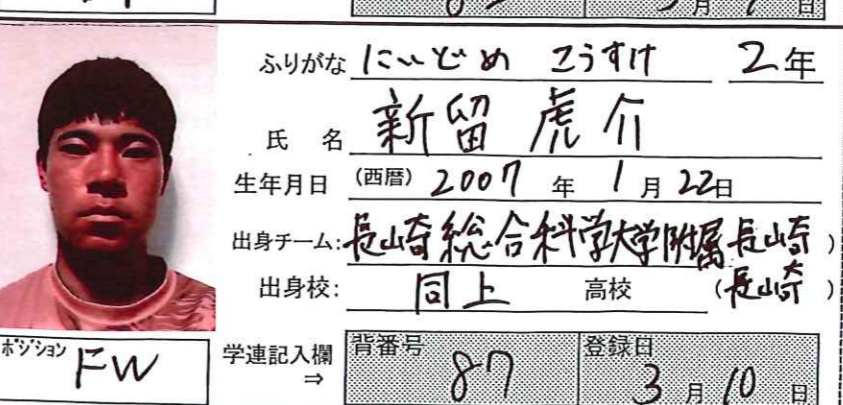 ふりがな にいどめ こうすけ 2年
氏 名 新留 虎介
生年月日 (西暦) 2007 年 1 月 22日
出身チーム: 長崎総合科学大学附属 長崎 )
出身校: 同上 高校 (長崎 )
ポジション FW
学連記入欄 ⇒
背番号 87
登録日 3 月 10 日